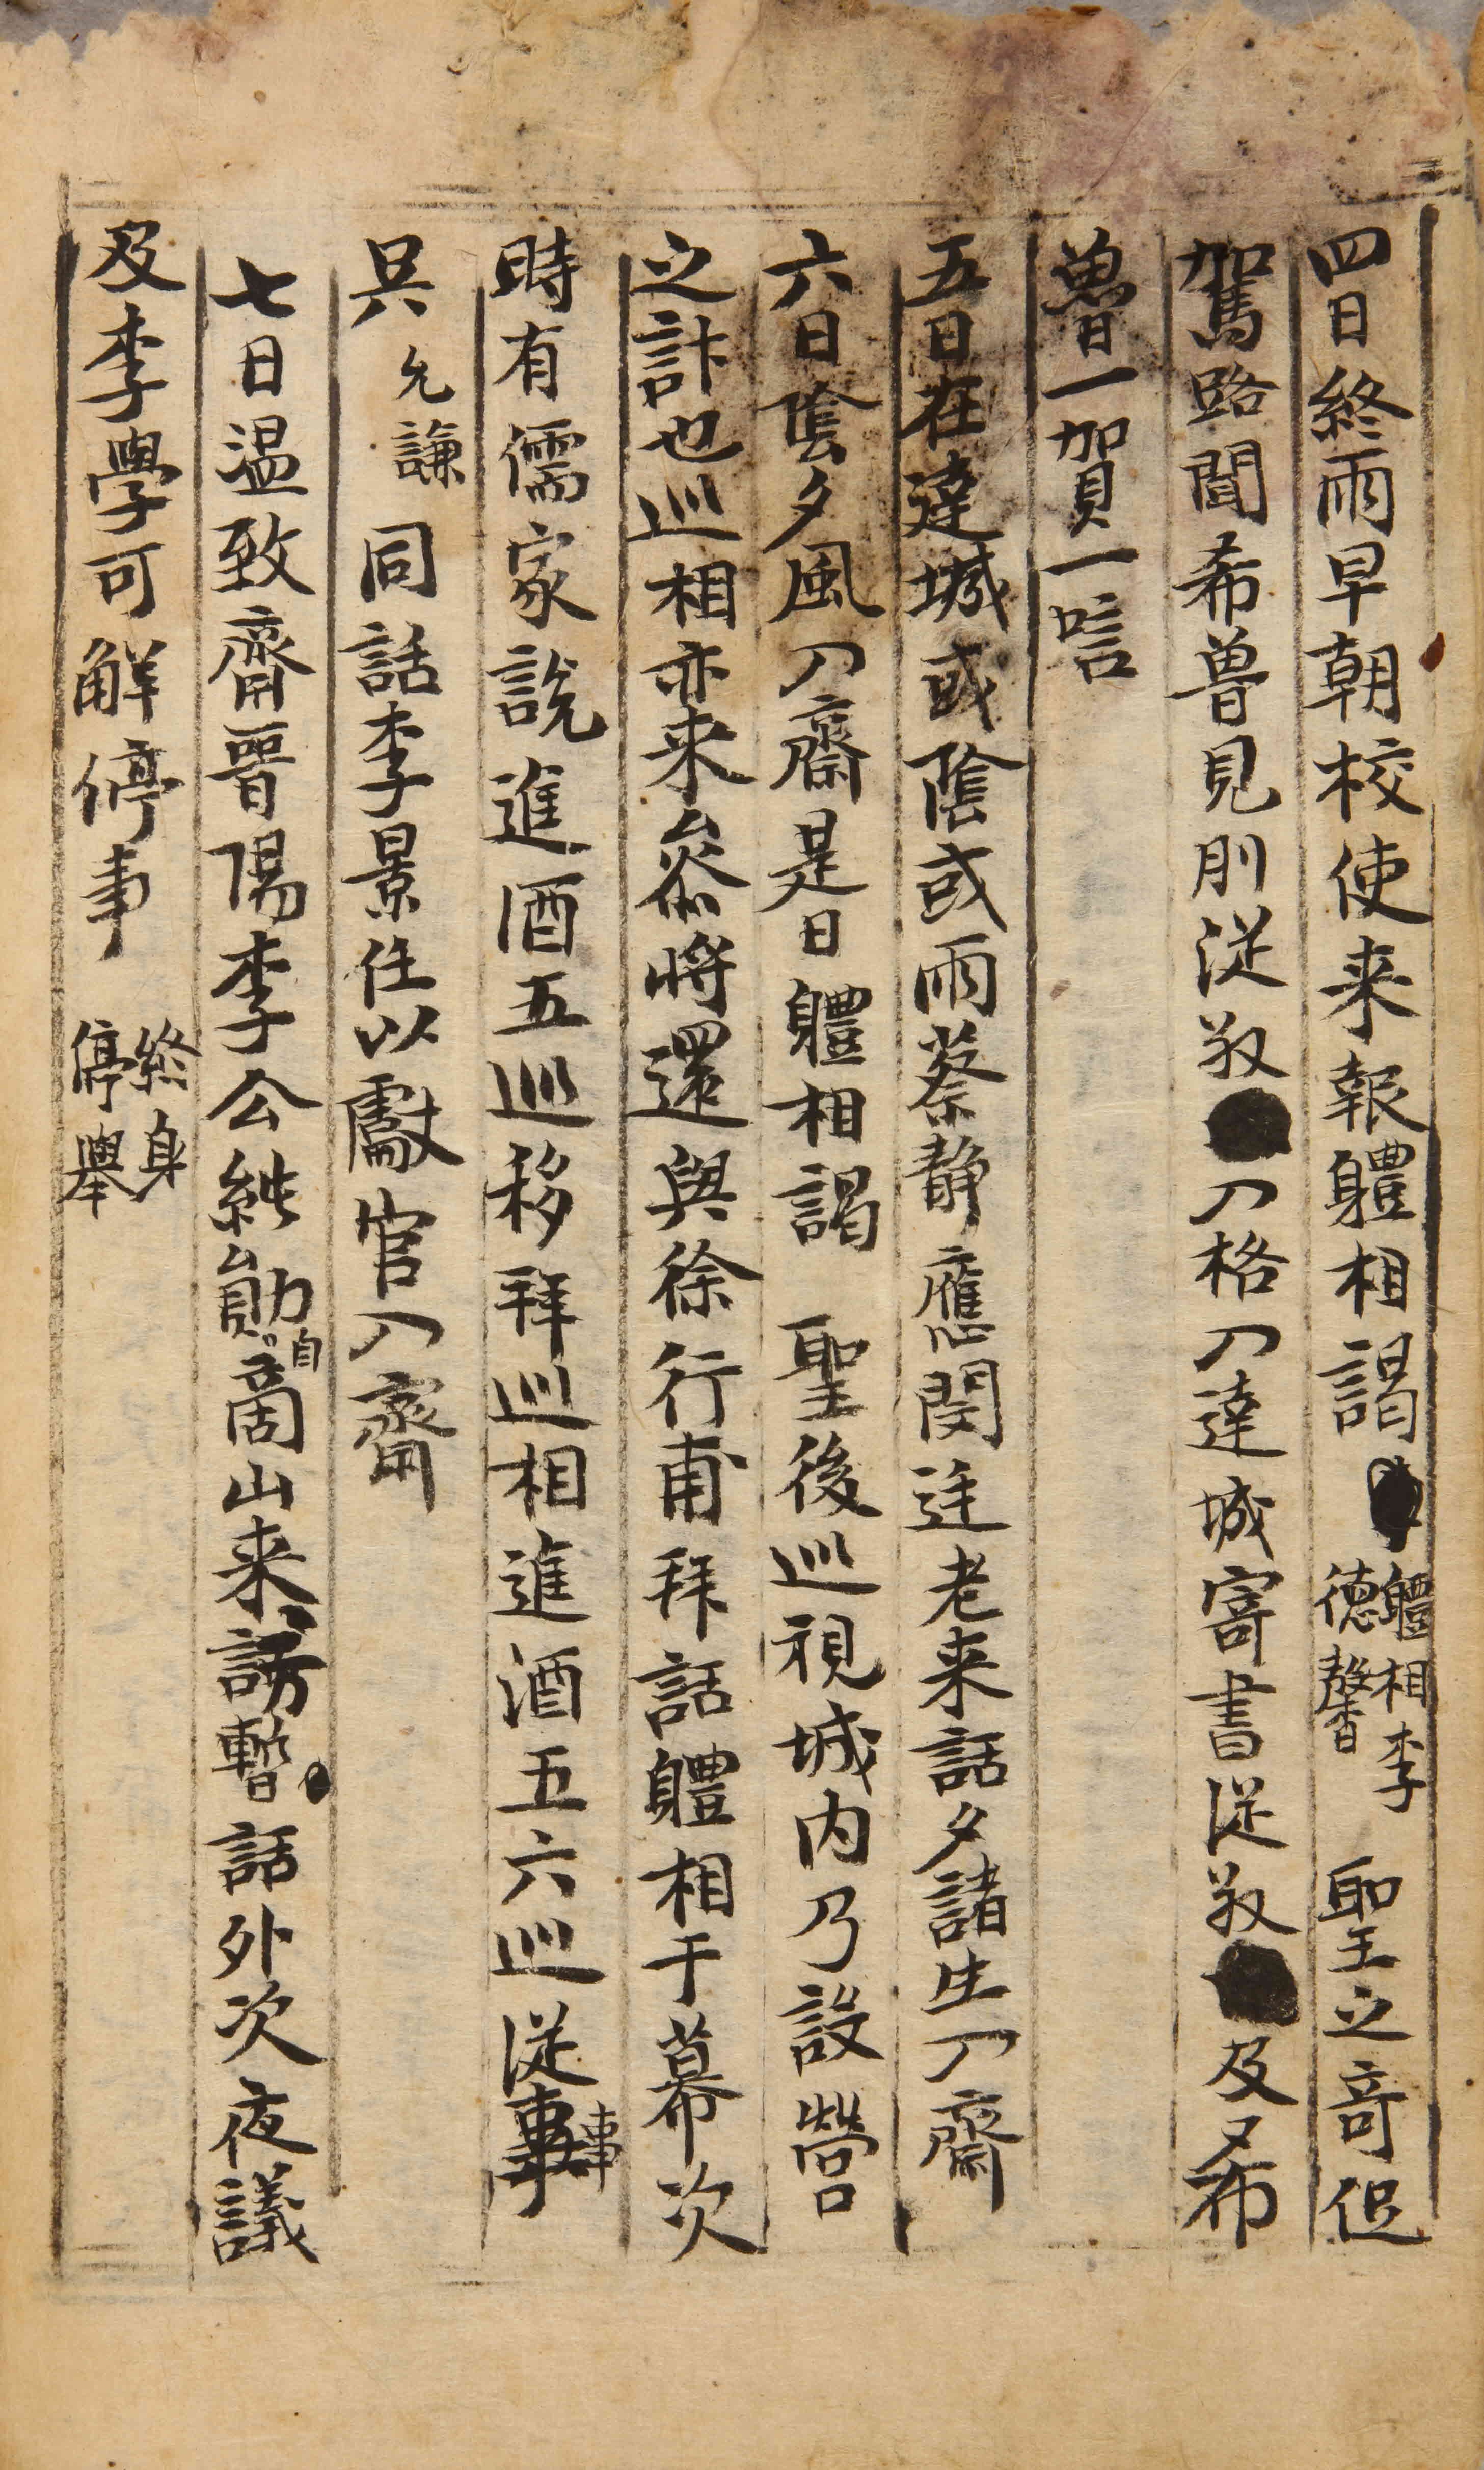 四日終雨早朝校使来報軆相謁軆相李德馨聖之竒促
駕路聞希魯見刖従敬入格入達城寄書従敬及希
魯一賀一唁
五日在達城或陰或雨蔡静應閔廷老来話夕諸生入齋
六日陰夕風入齋是日軆相謁 聖後巡視城内乃設營
之計也巡相亦来叅將還與徐行甫拜話軆相于幕次
時有儒家說進酒五巡移拜巡相進酒五六巡従事事
吴允謙同話李景任以獻官入齋
七日温致齋晉陽李公純勛自商山来訪暫話外次夜議
及李學可解停事終身停舉